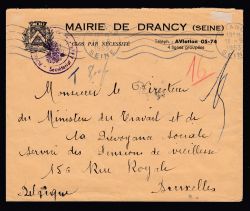 MAIRIE DE DRANCY (SEINE)
CLOS PAR NÉCESSITÉ
Téléph. : AVIation 05-74
4 lignes groupées
SEINE
T
16
Monsieur le Directeur
du Ministère du Travail et de
la Prévoyance sociale
Service des Pensions de vieillesse
15A Rue Royale
Bruxelles
Belgique